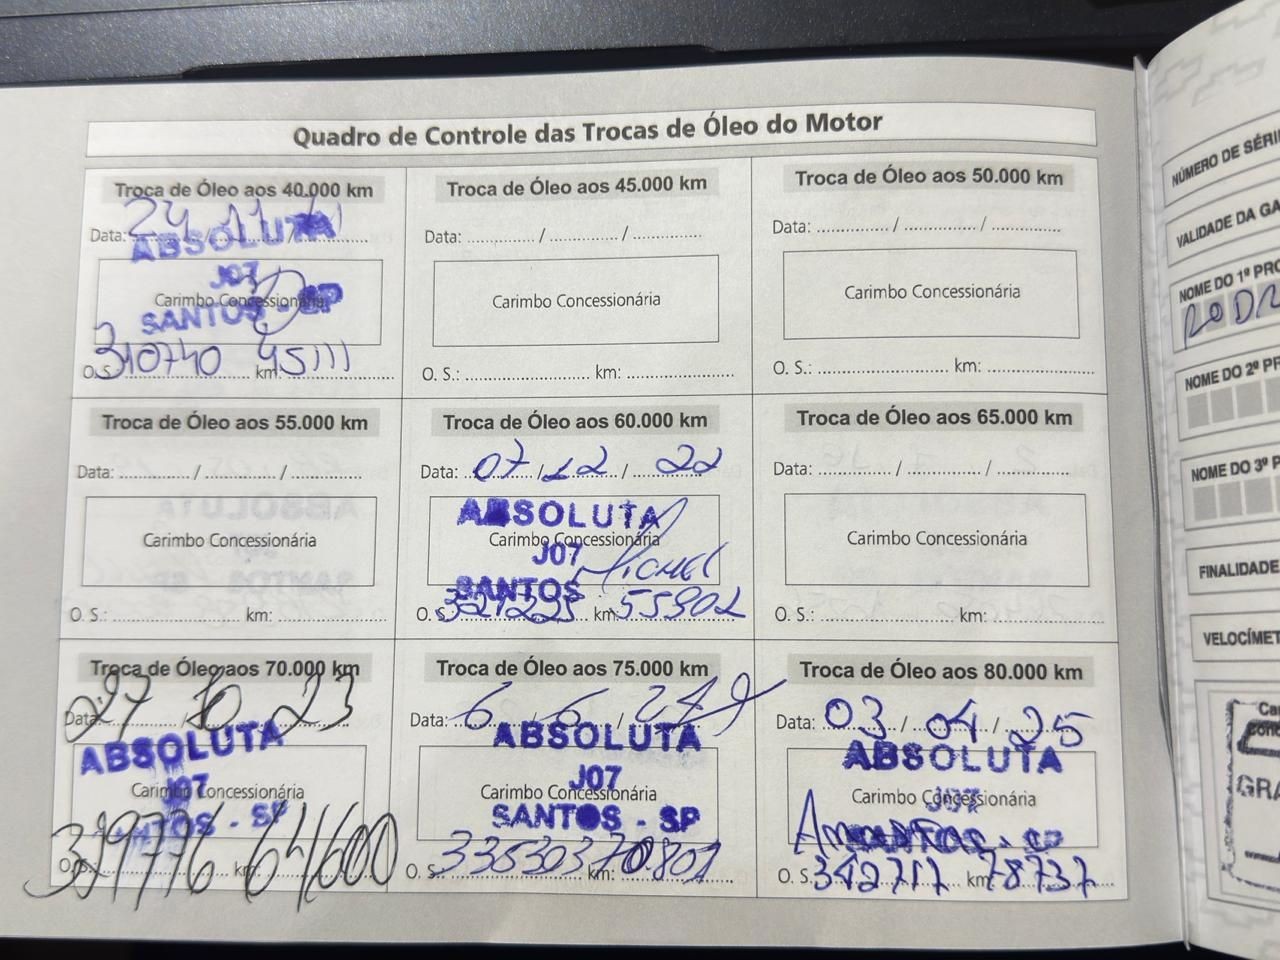 Quadro de Controle das Trocas de Óleo do Motor
Troca de Óleo aos 40.000 km
Data: 24 / 11 /
ABSOLUTA
J07
Carimbo Concessionária
SANTOS - SP
O. S.: 310740 km: 45111
Troca de Óleo aos 45.000 km
Data: / /
Carimbo Concessionária
O. S.: km:
Troca de Óleo aos 50.000 km
Data: / /
Carimbo Concessionária
O. S.: km:
Troca de Óleo aos 55.000 km
Data: / /
Carimbo Concessionária
O. S.: km:
Troca de Óleo aos 60.000 km
Data: 07 / 12 / 22
ABSOLUTA
Carimbo Concessionária
J07
SANTOS
O. S.: 321225 km: 55902
Troca de Óleo aos 65.000 km
Data: / /
Carimbo Concessionária
O. S.: km:
Troca de Óleo aos 70.000 km
Data: 27 / 10 / 23
ABSOLUTA
J07
Carimbo Concessionária
SANTOS - SP
O. S.: 329776 km: 64600
Troca de Óleo aos 75.000 km
Data: 6 / 6 / 24
ABSOLUTA
J07
Carimbo Concessionária
SANTOS - SP
O. S.: 335303 km: 70801
Troca de Óleo aos 80.000 km
Data: 03 / 04 / 25
ABSOLUTA
J07
Carimbo Concessionária
SANTOS - SP
O. S.: 342717 km: 78737
NÚMERO DE SÉRI
VALIDADE DA GA
NOME DO 1º PRO
RODR
NOME DO 2º PR
NOME DO 3º P
FINALIDADE
VELOCÍMET
Ca
GRA